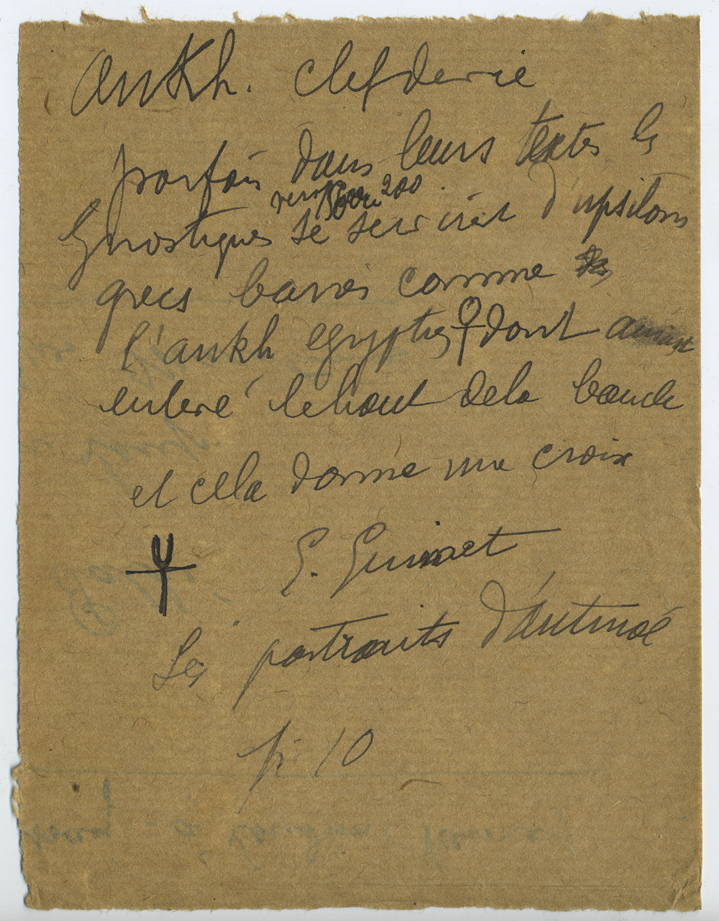 Ankh. clef de vie
parfois dans leurs textes les
vers 200
Gnostiques se servent d'upsilons
grecs barrés comme
l'ankh egyptien ☥ dont
enlevé le haut de la boucle
et cela donne une croix
E. Guimet
Les portraits d'Antinoé
p. 10